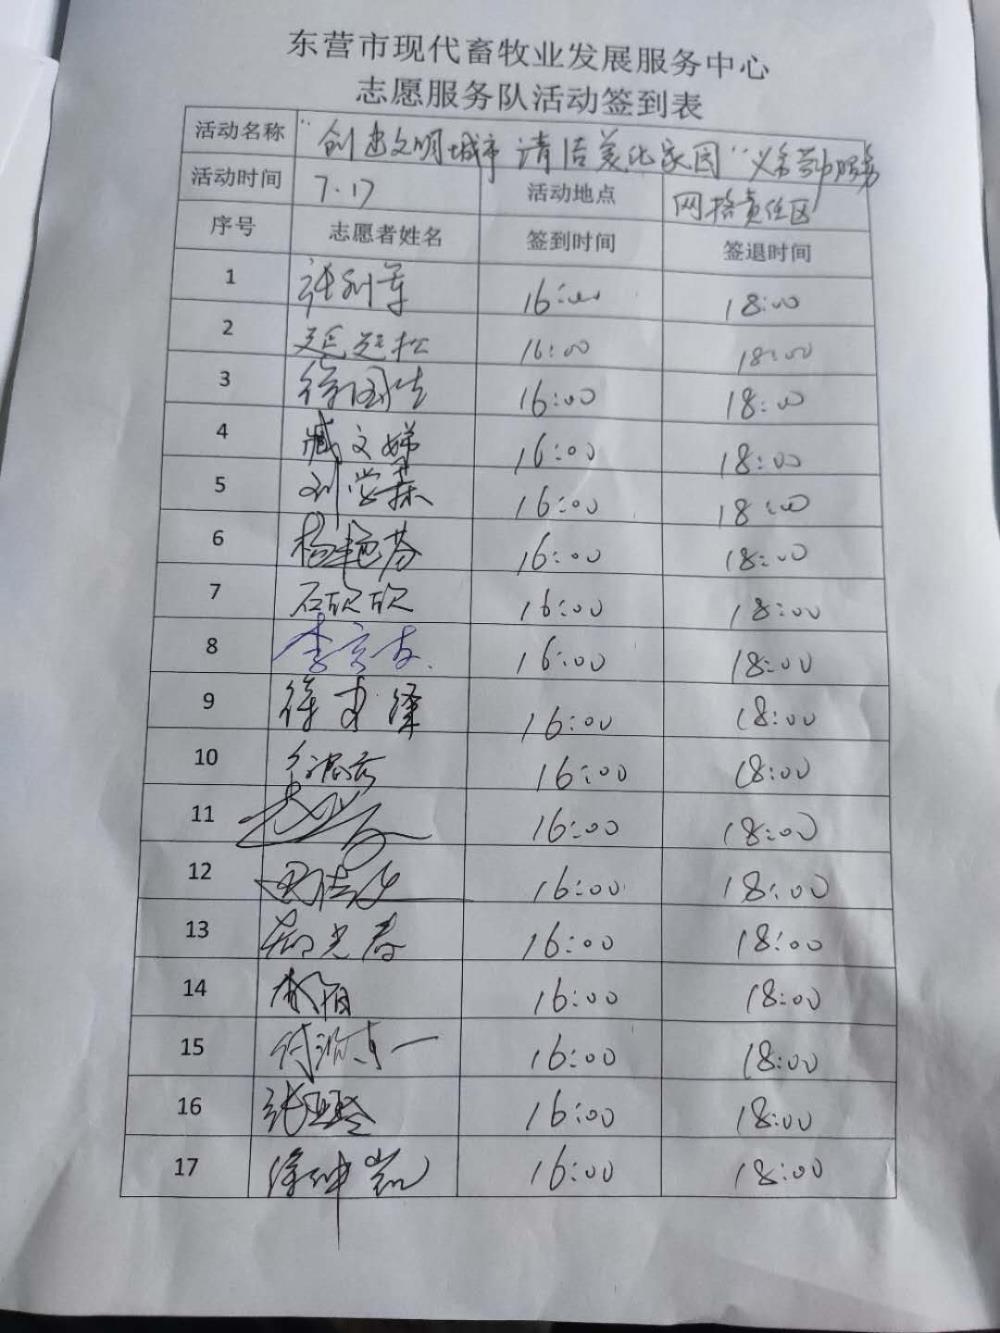 东营市现代畜牧业发展服务中心
志愿服务队活动签到表
活动名称 "创建文明城市 清洁美化家园"义务劳动服务
活动时间 7.17 活动地点 网格责任区
序号 志愿者姓名 签到时间 签退时间
1 张利军 16:00 18:00
2 延延松 16:00 18:00
3 徐国华 16:00 18:00
4 臧文娣 16:00 18:00
5 刘学森 16:00 18:00
6 杨艳芬 16:00 18:00
7 石欣欣 16:00 18:00
8 李京友 16:00 18:00
9 徐 16:00 18:00
10 16:00 18:00
11 16:00 18:00
12 田 16:00 18:00
13 光春 16:00 18:00
14 16:00 18:00
15 16:00 18:00
16 张 16:00 18:00
17 徐坤凯 16:00 18:00